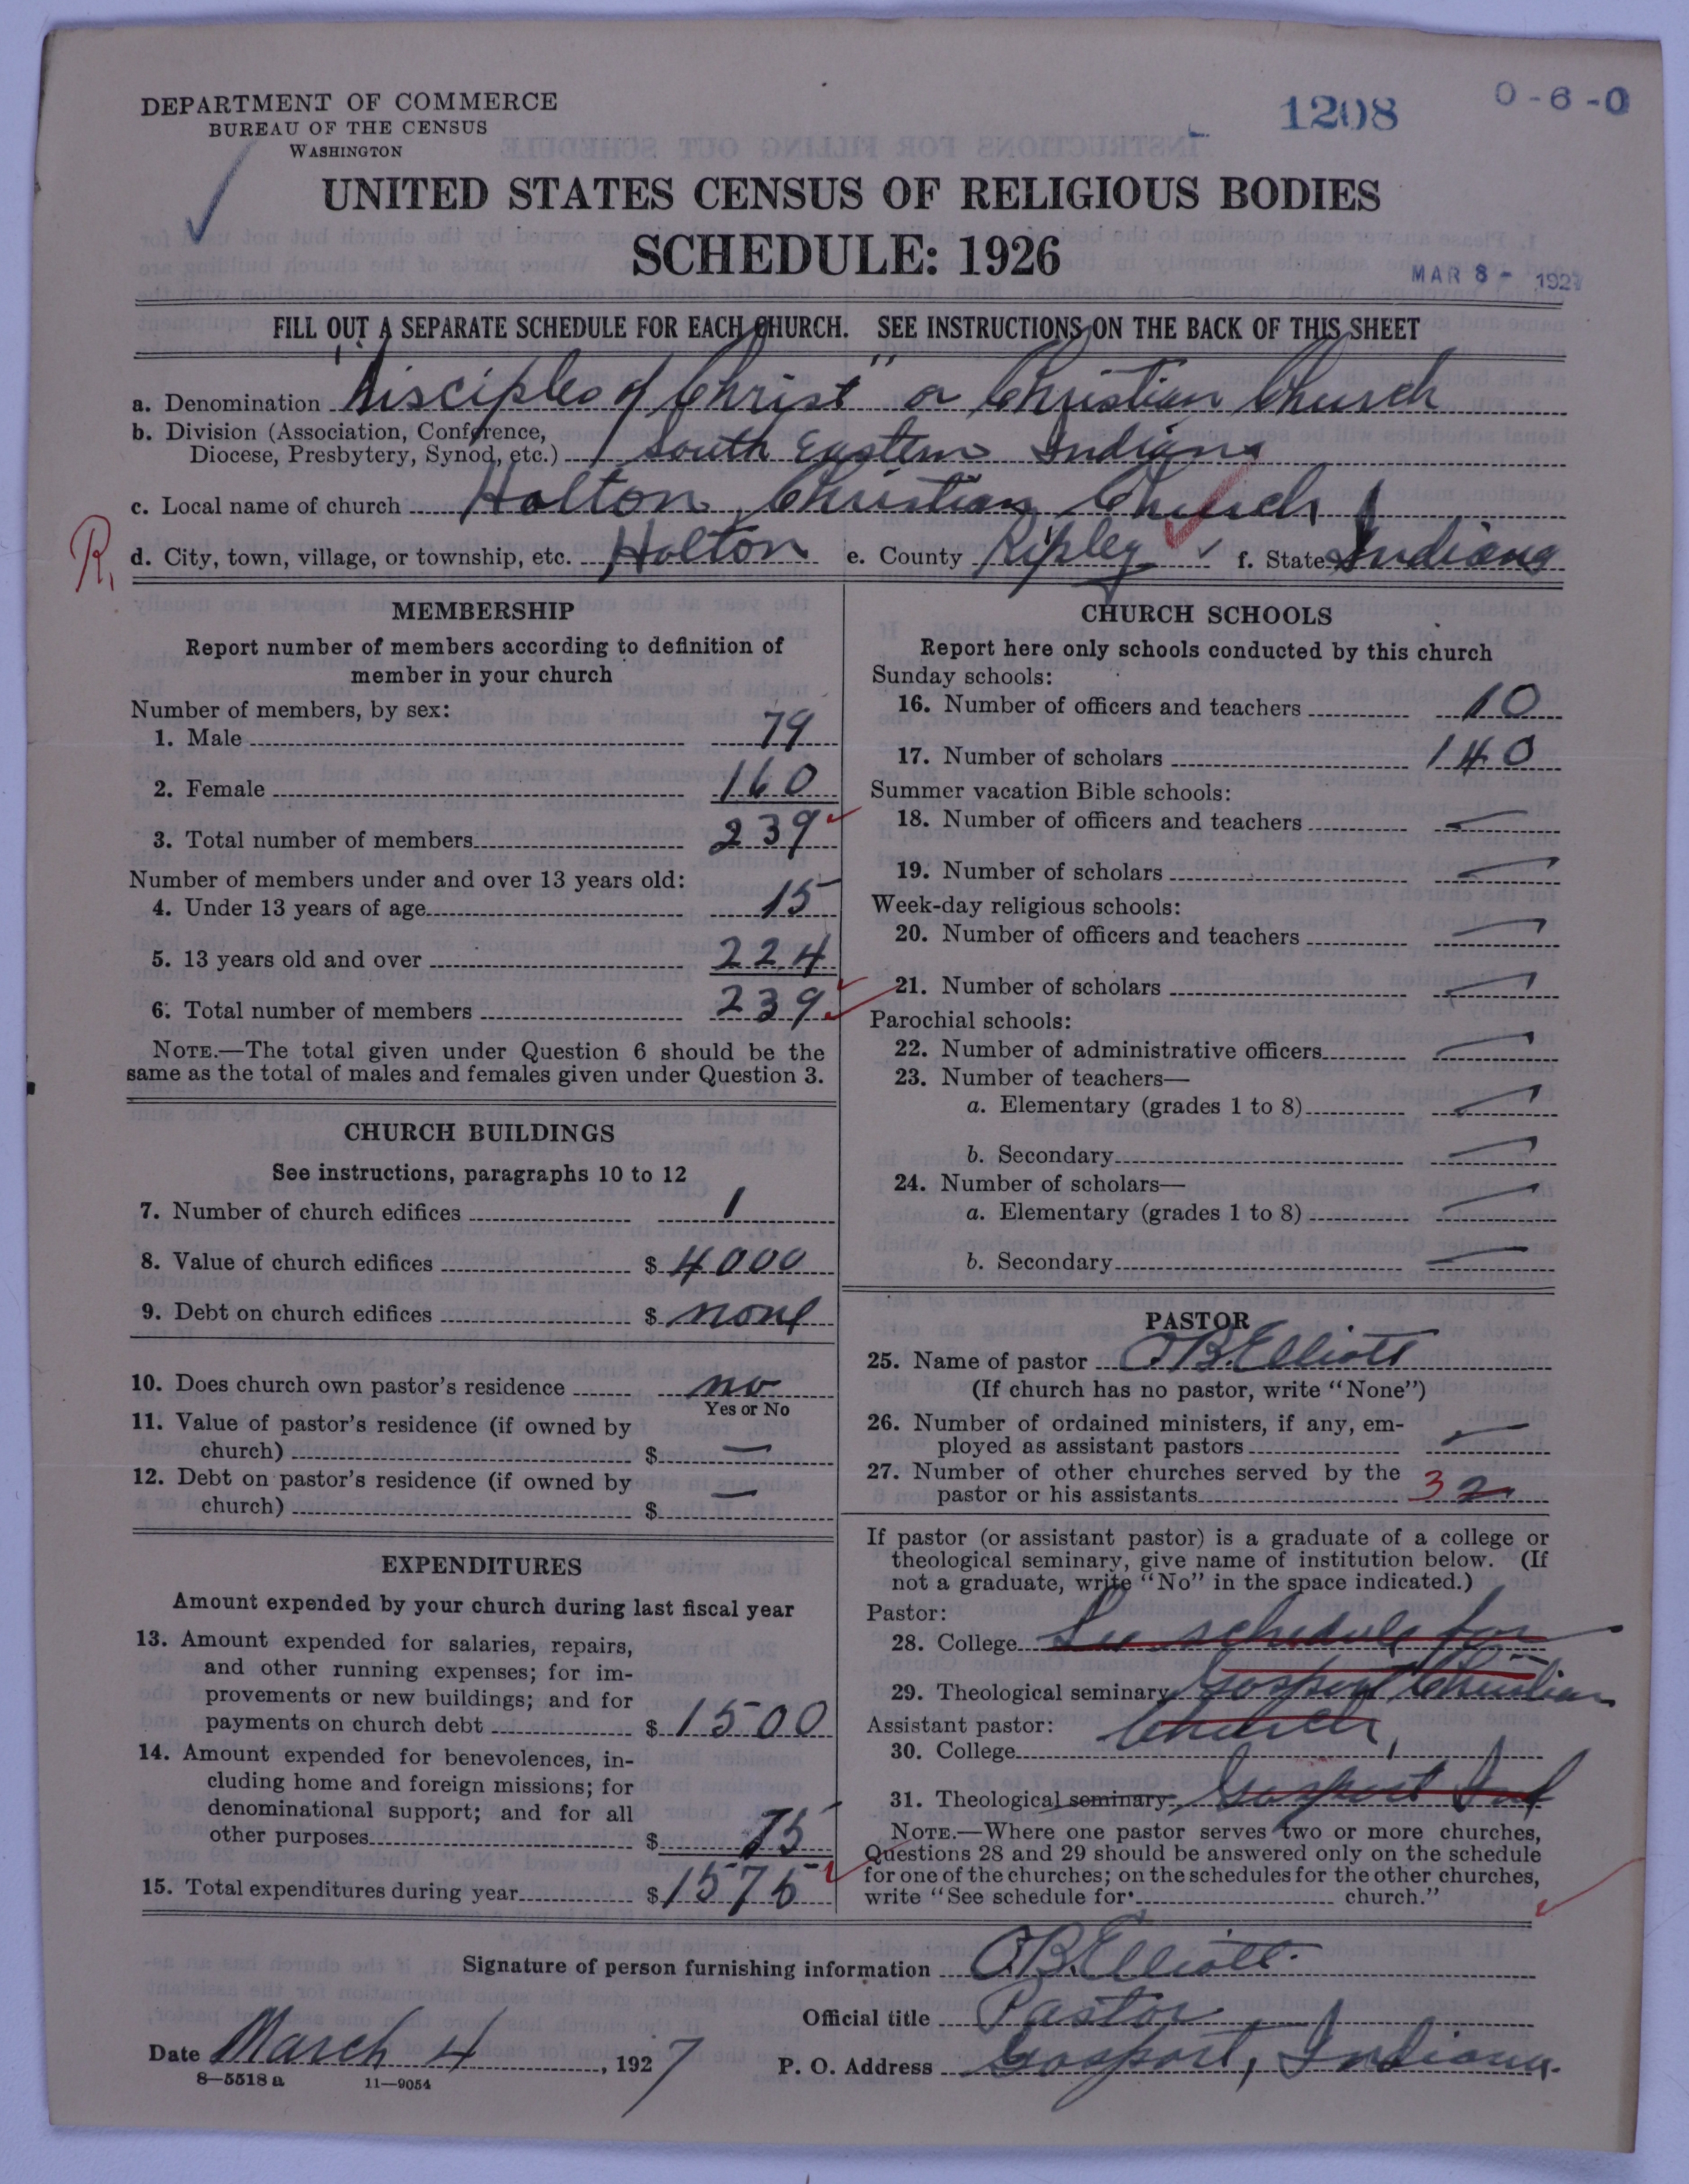 DEPARTMENT OF COMMERCE
BUREAU OF THE CENSUS
WASHINGTON
1208
0-6-0
UNITED STATES CENSUS OF RELIGIOUS BODIES
SCHEDULE: 1926
MAR 8 - 1927
FILL OUT A SEPARATE SCHEDULE FOR EACH CHURCH. SEE INSTRUCTIONS ON THE BACK OF THIS SHEET
a. Denomination "Disciples of Christ" or Christian Church
b. Division (Association, Conference,
Diocese, Presbytery, Synod, etc.) South Eastern Indiana
c. Local name of church Holton Christian Church
R.
d. City, town, village, or township, etc. Holton e. County Ripley f. State Indiana
MEMBERSHIP
Report number of members according to definition of
member in your church
Number of members, by sex:
1. Male 79
2. Female 160
3. Total number of members 239
Number of members under and over 13 years old:
4. Under 13 years of age 15
5. 13 years old and over 224
6. Total number of members 239
NOTE.—The total given under Question 6 should be the
same as the total of males and females given under Question 3.
CHURCH BUILDINGS
See instructions, paragraphs 10 to 12
7. Number of church edifices 1
8. Value of church edifices $ 4000
9. Debt on church edifices $ none
10. Does church own pastor's residence no
Yes or No
11. Value of pastor's residence (if owned by
church) $ —
12. Debt on pastor's residence (if owned by
church) $ —
EXPENDITURES
Amount expended by your church during last fiscal year
13. Amount expended for salaries, repairs,
and other running expenses; for im-
provements or new buildings; and for
payments on church debt $ 1500
14. Amount expended for benevolences, in-
cluding home and foreign missions; for
denominational support; and for all
other purposes $ 75
15. Total expenditures during year $ 1575
CHURCH SCHOOLS
Report here only schools conducted by this church
Sunday schools:
16. Number of officers and teachers 10
17. Number of scholars 140
Summer vacation Bible schools:
18. Number of officers and teachers —
19. Number of scholars —
Week-day religious schools:
20. Number of officers and teachers —
21. Number of scholars —
Parochial schools:
22. Number of administrative officers —
23. Number of teachers—
a. Elementary (grades 1 to 8) —
b. Secondary —
24. Number of scholars—
a. Elementary (grades 1 to 8) —
b. Secondary —
PASTOR
25. Name of pastor O B. Elliott
(If church has no pastor, write "None")
26. Number of ordained ministers, if any, em-
ployed as assistant pastors —
27. Number of other churches served by the
pastor or his assistants 3 2
If pastor (or assistant pastor) is a graduate of a college or
theological seminary, give name of institution below. (If
not a graduate, write "No" in the space indicated.)
Pastor:
28. College See schedule for
29. Theological seminary Gosport Christian
Assistant pastor: Church,
30. College
31. Theological seminary Gosport Ind
NOTE.—Where one pastor serves two or more churches,
Questions 28 and 29 should be answered only on the schedule
for one of the churches; on the schedules for the other churches,
write "See schedule for church."
Signature of person furnishing information O B. Elliott
Official title Pastor
Date March 4, 1927 P. O. Address Gosport, Indiana.
8—5518 a 11—9054